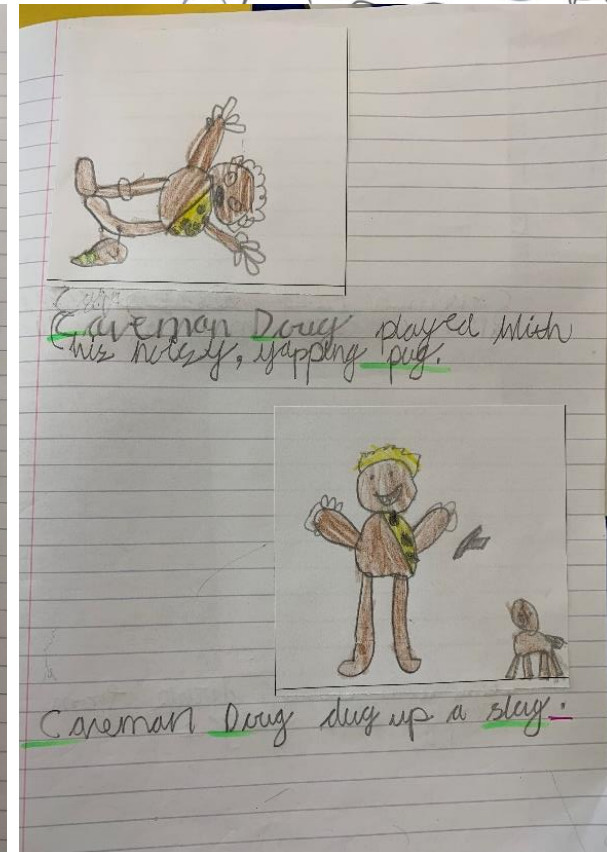 Caveman Doug played with
his noisy, yapping pug.
Caveman Doug dug up a slug.